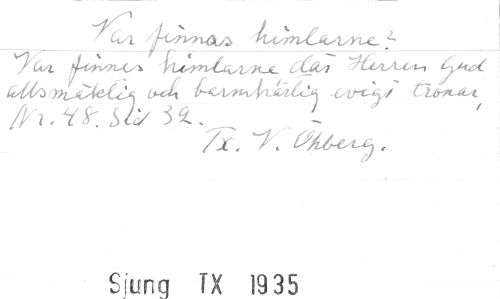 Var finnas himlarne?
Var finnes himlarne där Herren Gud
allsmäktig och barmhärtig evigt tronar,
Nr. 48. Sid 32.
Tx. V. Öhberg.
Sjung TX 1935